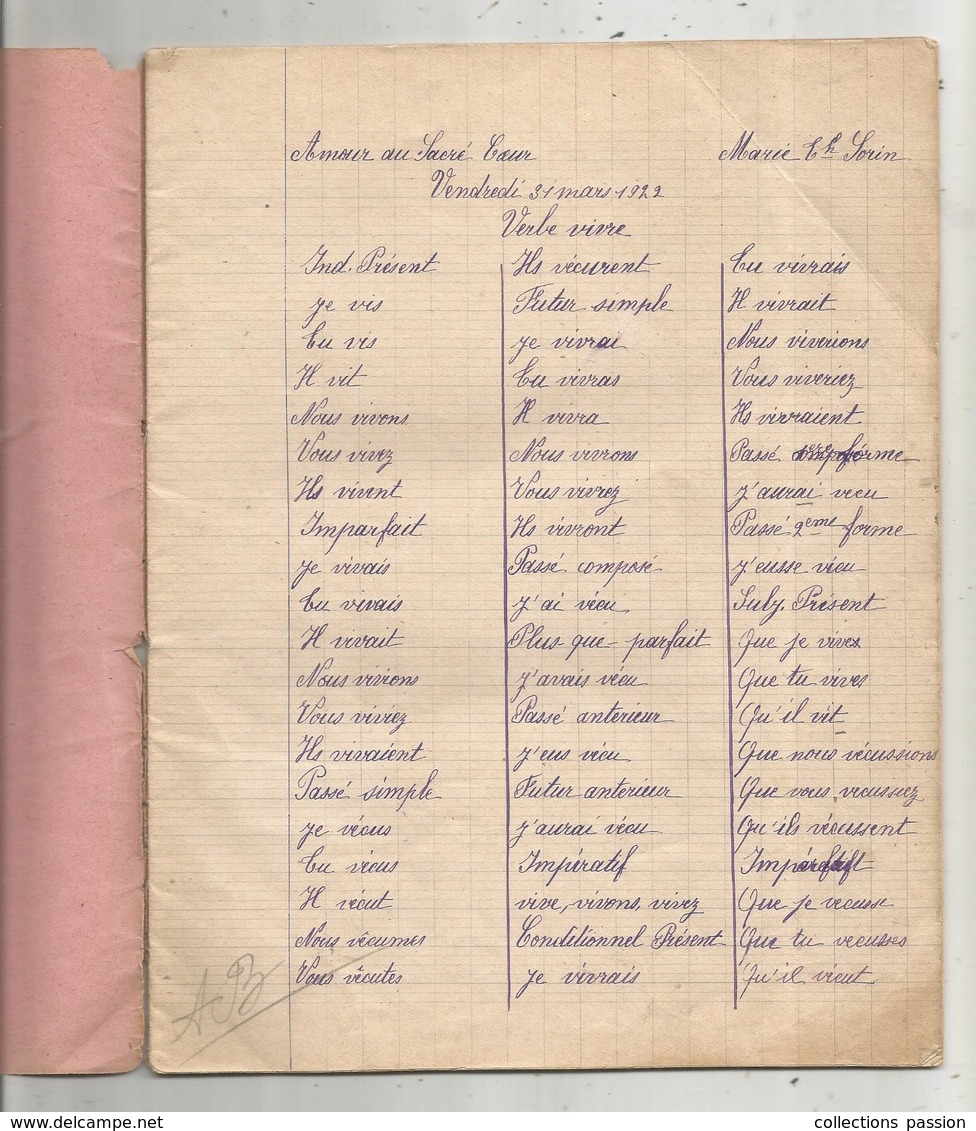 Amour au Sacré Cœur
Marie Th Sorin
Vendredi 31 mars 1922
Verbe vivre
Ind. Présent
je vis
Tu vis
Il vit
Nous vivons
Vous vivez
Ils vivent
Imparfait
je vivais
Tu vivais
Il vivait
Nous vivions
Vous viviez
Ils vivaient
Passé simple
je vécus
Tu vécus
Il vécut
Nous vêcumes
Vous vêcutes
Ils vécurent
Futur simple
je vivrai
Tu vivras
Il vivra
Nous vivrons
Vous vivrez
Ils vivront
Passé composé
j'ai vécu
Plus que-parfait
j'avais vécu
Passé anterieur
j'eus vécu
Futur anterieur
j'aurai vécu
Impératif
vive, vivons, vivez
Conditionnel Présent
je vivrais
Tu vivrais
Il vivrait
Nous viverions
Vous viveriez
Ils vivraient
Passé forme
j'aurai vecu
Passé 2eme forme
j'eusse vécu
Subj. Présent
Que je vive
Que tu vives
Qu'il vit
Que nous vécussions
Que vous vecussiez
Qu'ils vécussent
Imparfait
Que je vecusse
Que tu vecusses
Qu'il vécut
AB
collections passion